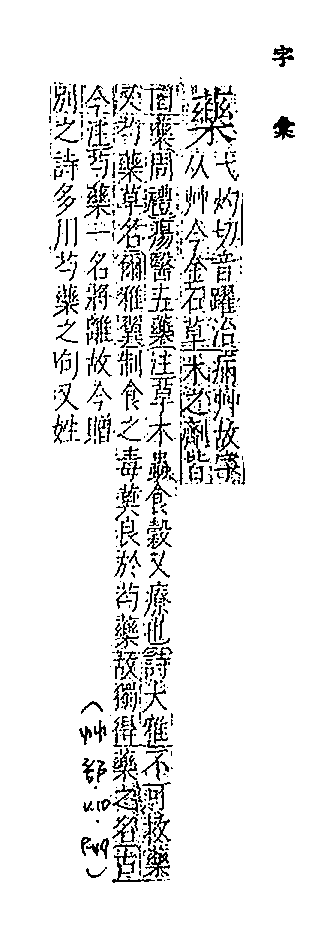 字彙
藥
弋灼切音躍治病艸故字
从艸今金石草木之劑皆
曰藥周禮瘍醫五藥注草木蟲食穀又療也詩大雅不可救藥
又芍藥草名爾雅翼制食之毒莫良於芍藥故獨得藥之名古
今注芍藥一名將離故今贈
別之詩多用芍藥之句又姓
(艸部.V.10.P.49)